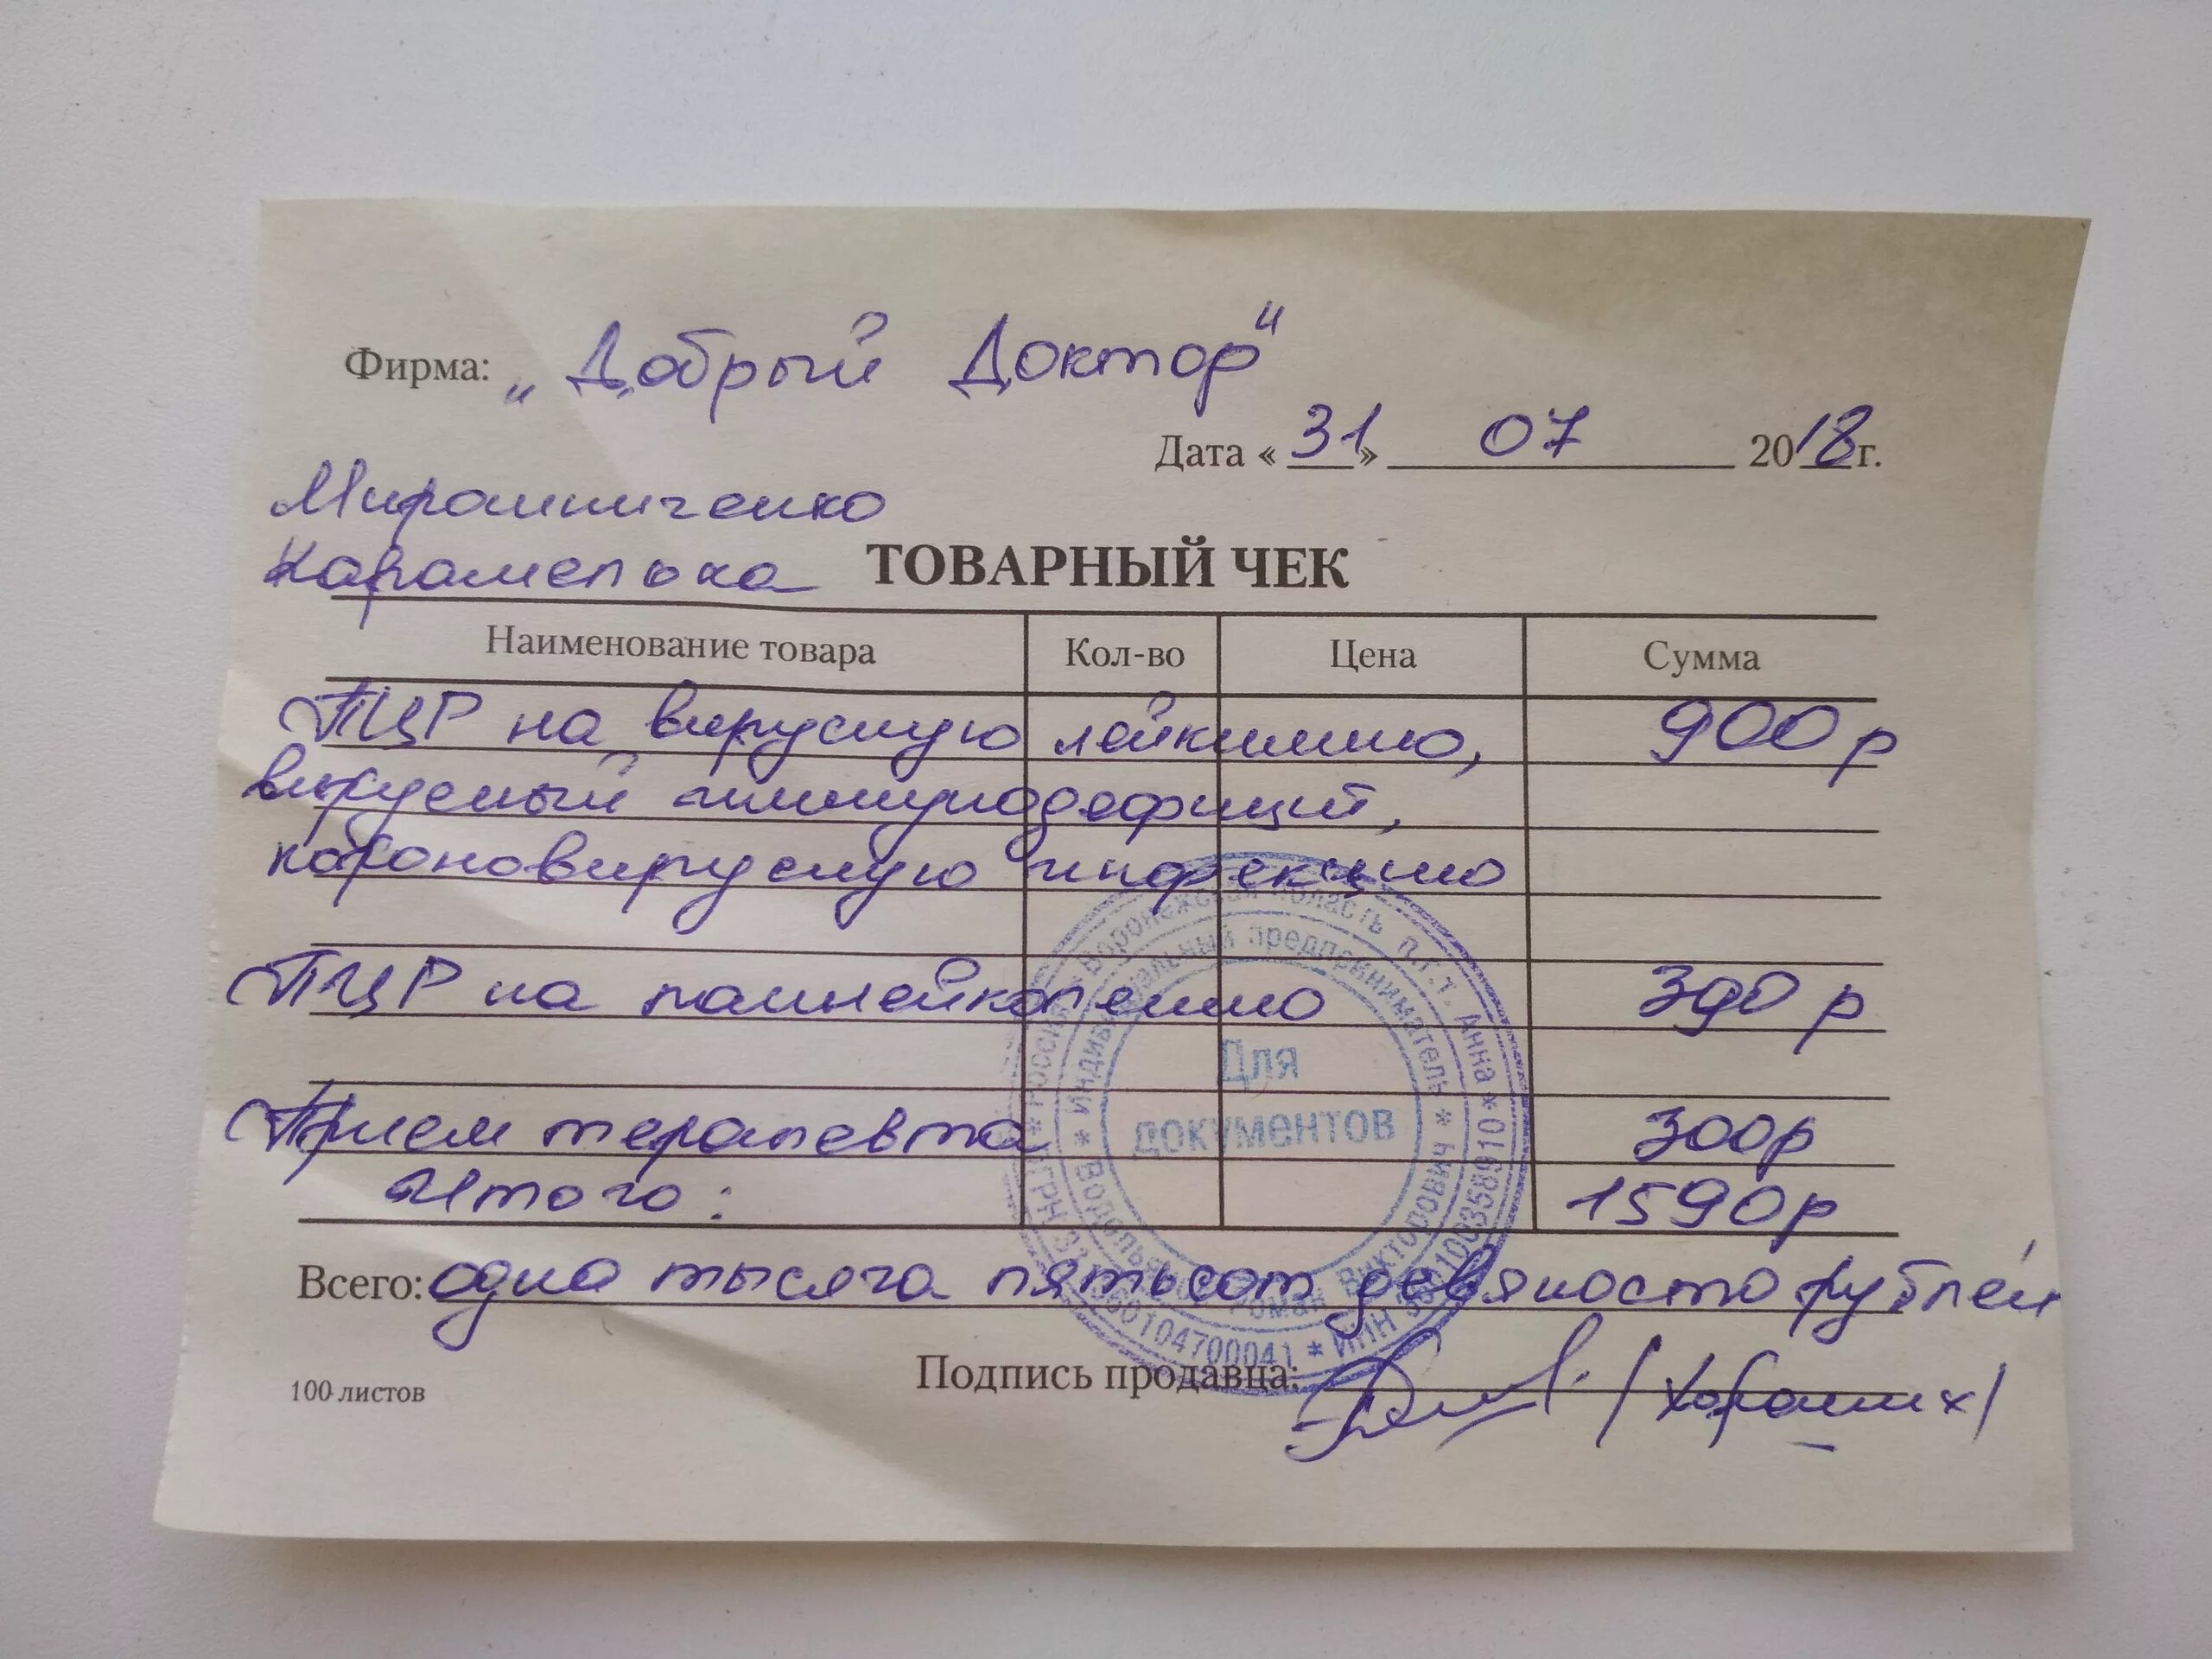 Фирма: „Добрый Доктор"
Дата «31» 07 2018г.
Мирошниченко
Карамелька
ТОВАРНЫЙ ЧЕК
Наименование товара Кол-во Цена Сумма
ПЦР на вирусную лейкимию, 900р
вирусный иммунодефицит,
короновирусную инфекцию
ПЦР на панлейкопению 390 р
Прием терапевта 300р
Итого: 1590р
Всего: одна тысяча пятьсот девяносто рублей
Подпись продавца: /Хороших/
100 листов
Россия Воронежская область п.г.т. Анна
Индивидуальный предприниматель
Роман Викторович
Для
документов